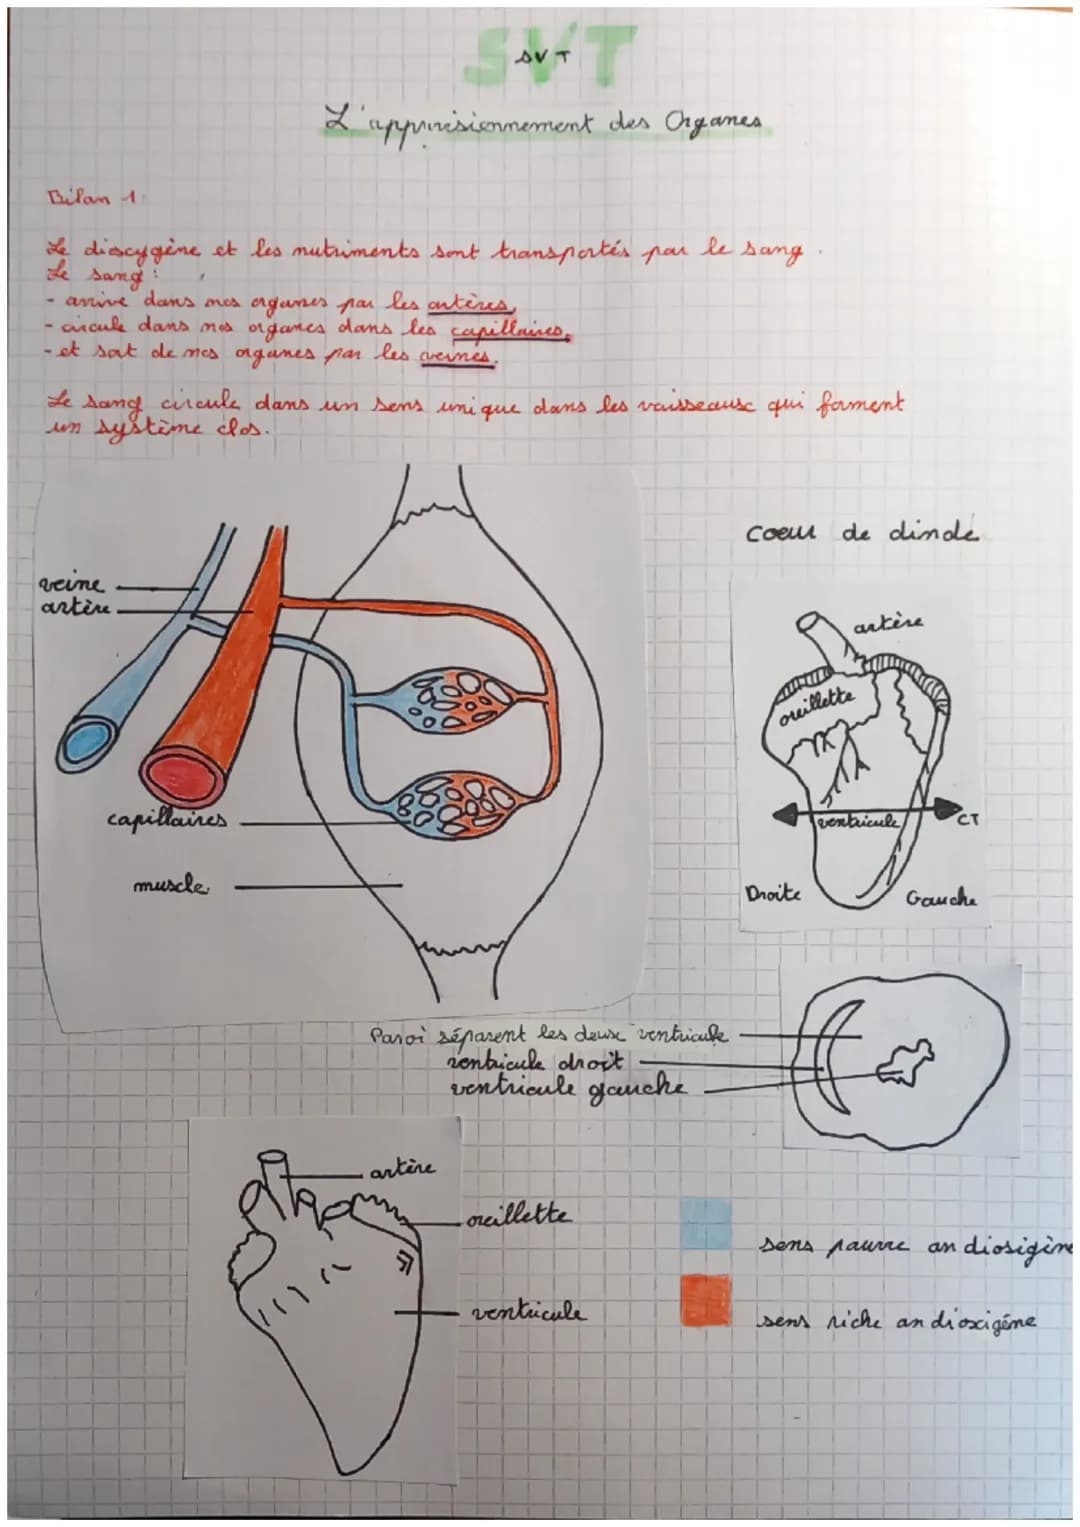 SVT
SVT
L'approvisionnement des Organes
Bilan 1:
Le dioxygène et les nutriments sont transportés par le sang.
Le sang :
- arrive dans nos organes par les artères,
- circule dans nos organes dans les capillaires,
- et sort de nos organes par les veines.
Le sang circule dans un sens unique dans les vaisseaux qui forment
un système clos.
coeur de dinde
veine
artère
artère
oreillette
capillaires
ventricule
CT
muscle
Droite
Gauche
Paroi séparent les deux ventricule
ventricule droit
ventricule gauche
artère
oreillette
sens pauvre an diosigène
ventricule
sens riche an dioxigéne